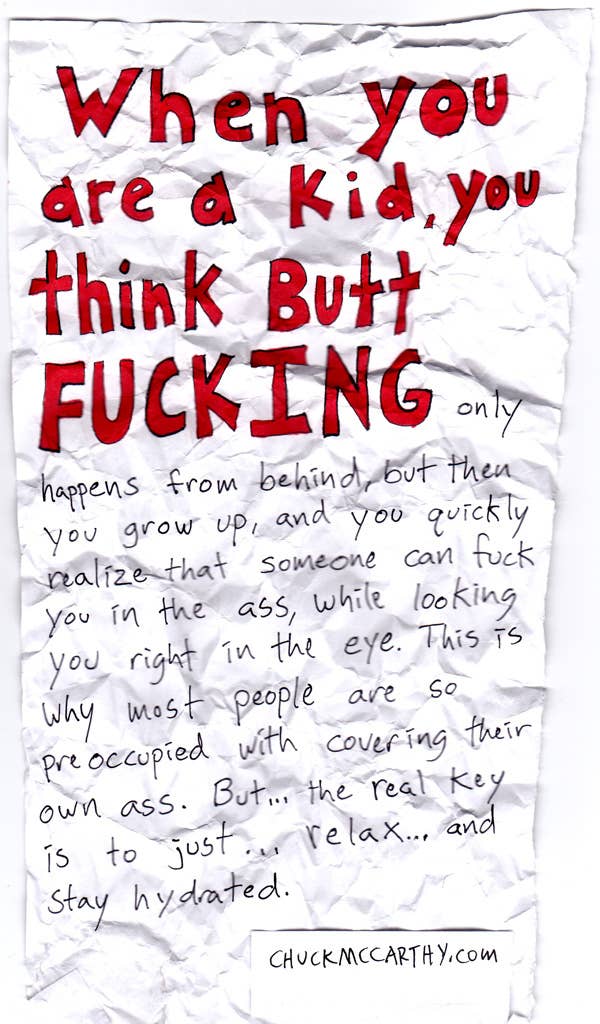 When you
are a kid, you
think Butt
FUCKING only
happens from behind, but then
you grow up, and you quickly
realize that someone can fuck
you in the ass, while looking
you right in the eye. This is
why most people are so
preoccupied with covering their
own ass. But... the real key
is to just... relax... and
stay hydrated.
CHUCKMCCARTHY.COM